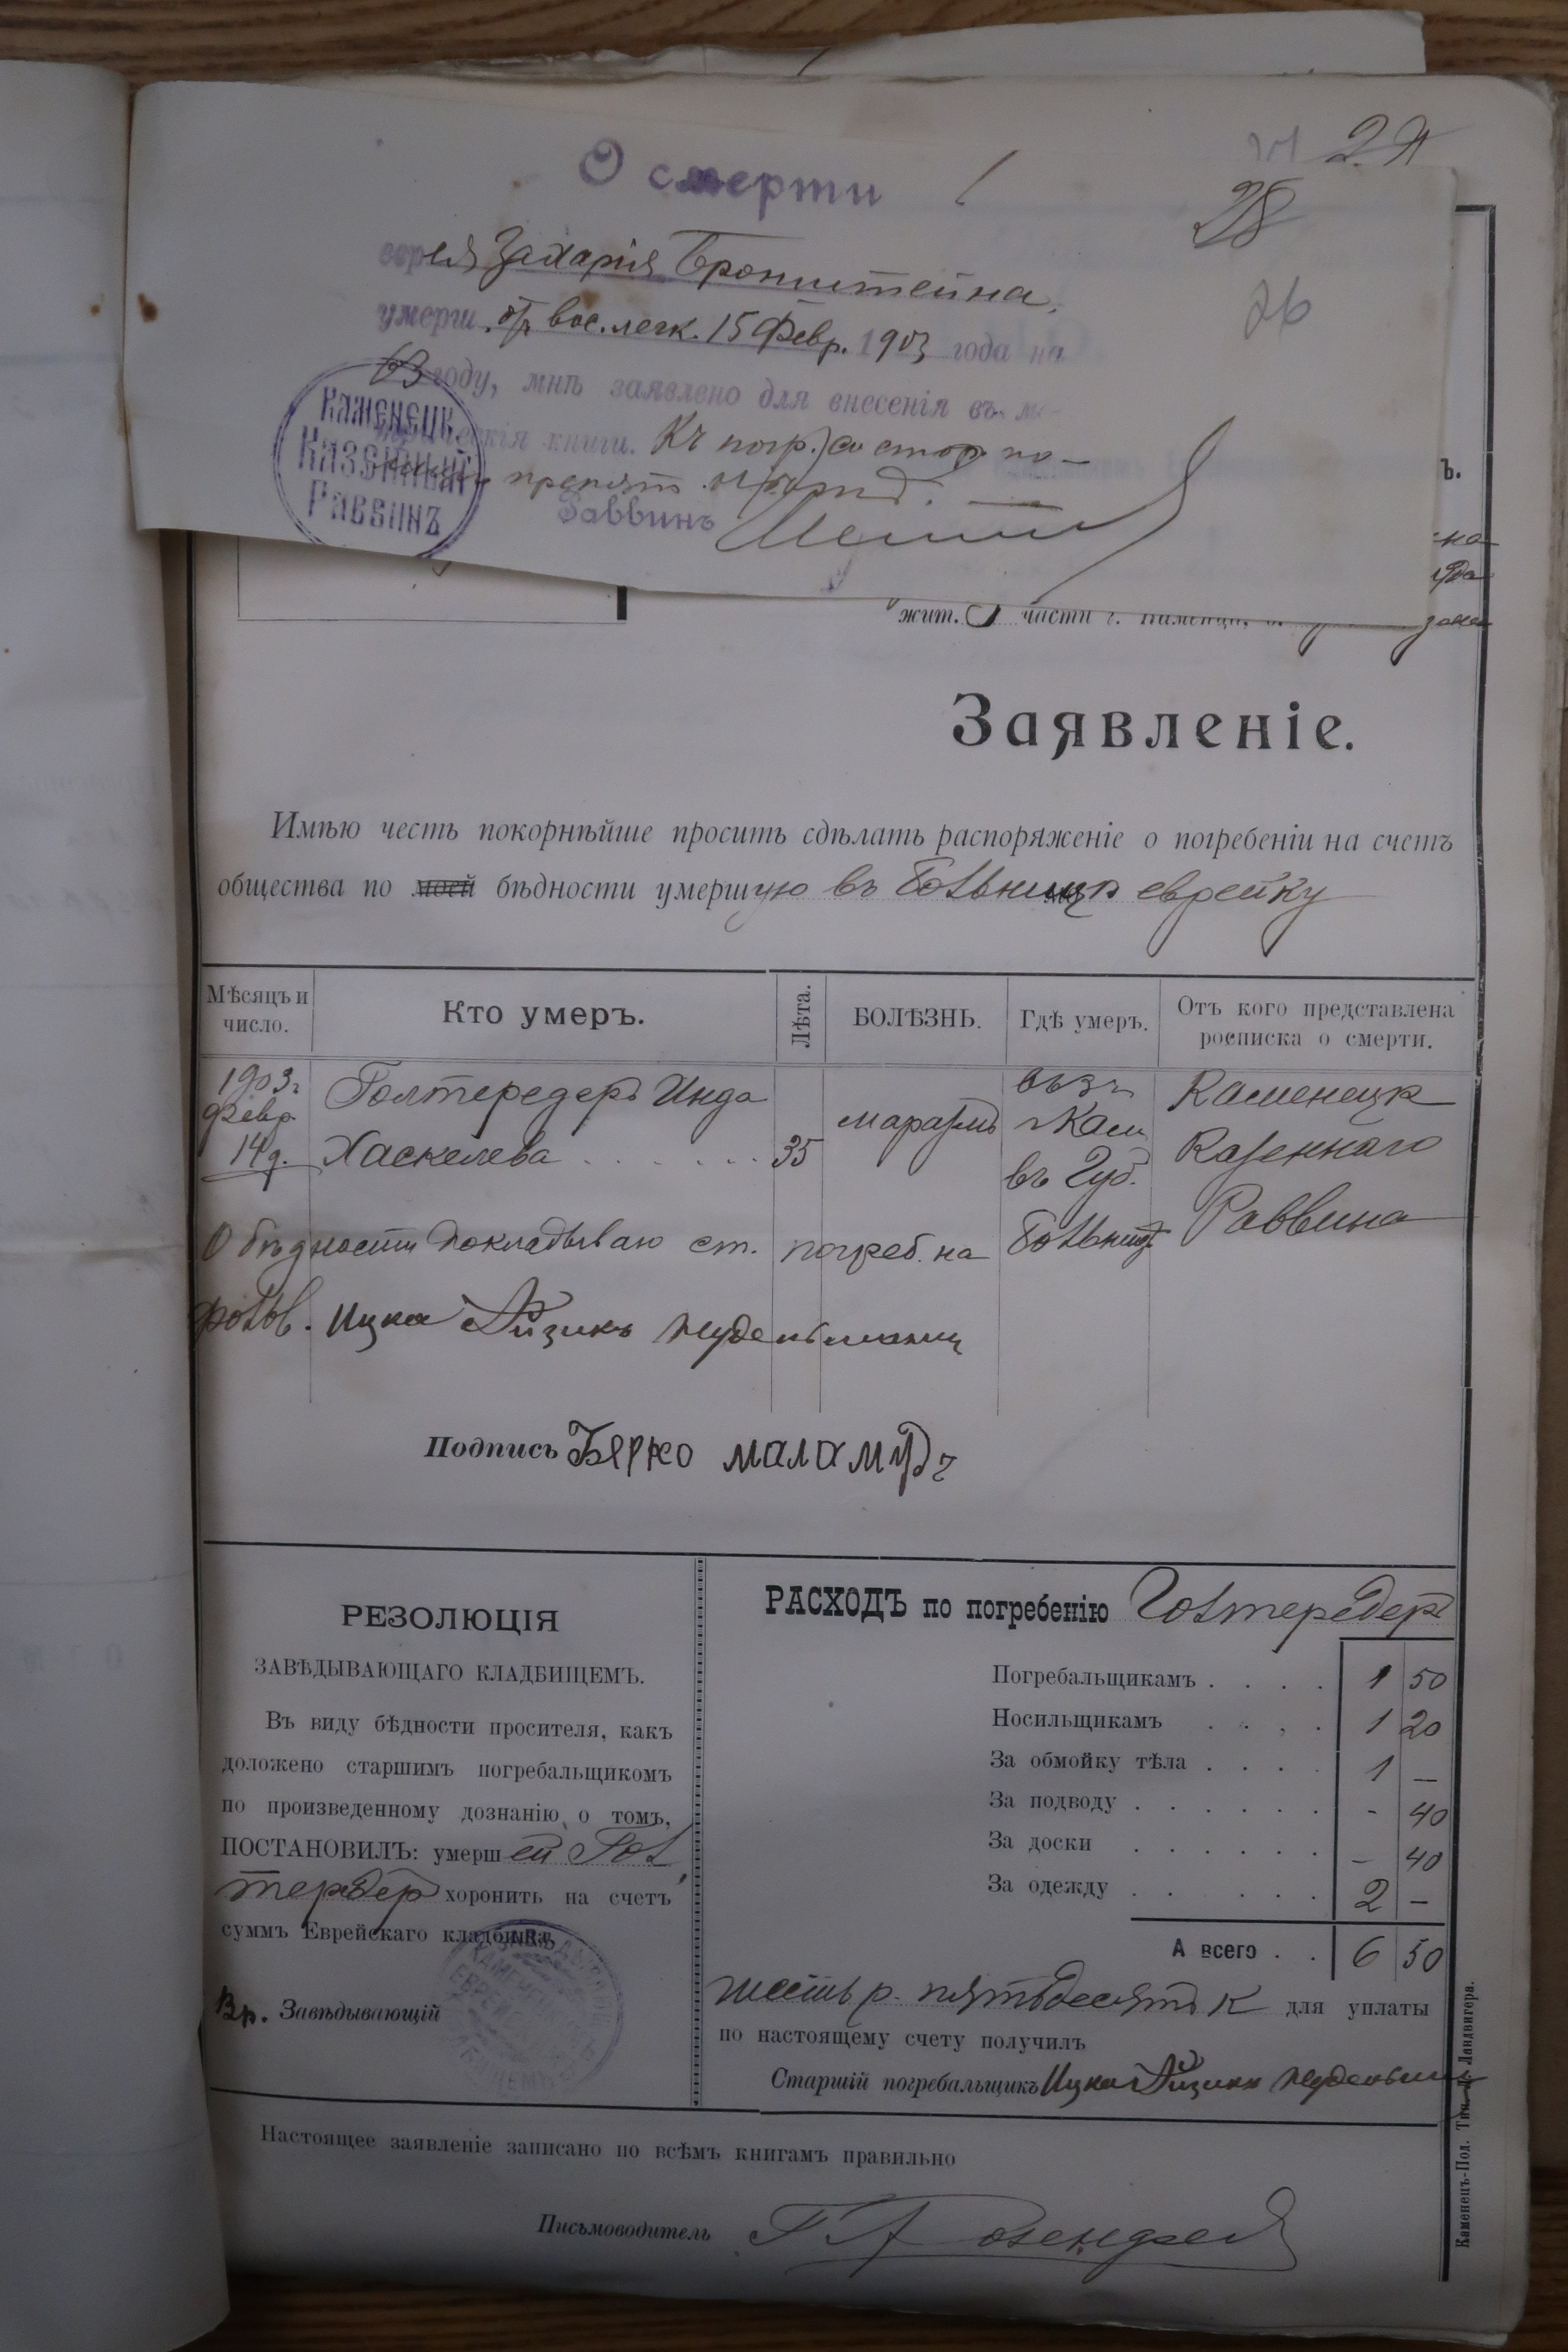 2.
28
26
О смерти
еврея Захарія Бронштейна,
умерш. отъ вос. легк. 15 Февр. 1903 года на
63 году, мнѣ заявлено для внесенія въ ме-
трическія книги. Къ погр. со стор. по-
препят.
Раввинъ
Каменецк.
Казенный
Раввинъ
ъ.
на
жит. части г. Каменца,
Заявленіе.
Имѣю честь покорнѣйше просить сдѣлать распоряженіе о погребеніи на счетъ
общества по моей бѣдности умершую въ больницѣ еврейку
Мѣсяцъ и число.
Кто умеръ.
Лѣта.
БОЛѢЗНЬ.
Гдѣ умеръ.
Отъ кого представлена росписка о смерти.
1903 г. Февр. 14 д.
Голтередеръ Инда Хаскелева
35
маразмъ
г. Кам. въ Губ. больницѣ
Каменецк. Казеннаго Раввина
О бѣдности докладываю ст. погреб. на
Ицка Айзикъ Нудельманъ
Подпись Бярко маламудъ
РЕЗОЛЮЦІЯ
ЗАВѢДЫВАЮЩАГО КЛАДБИЩЕМЪ.
Въ виду бѣдности просителя, какъ
доложено старшимъ погребальщикомъ
по произведенному дознанію о томъ,
ПОСТАНОВИЛЪ: умершей Гол
тередеръ хоронить на счетъ
суммъ Еврейскаго кладбища.
Вр. Завѣдывающій
РАСХОДЪ по погребенію Голтередеръ
Погребальщикамъ . . . . 1 50
Носильщикамъ . . . . 1 20
За обмойку тѣла . . . . 1 —
За подводу . . . . . . - 40
За доски . . . . . . — 40
За одежду . . . . . . 2 —
А всего . . 6 50
шесть р. пятьдесятъ к для уплаты
по настоящему счету получилъ
Старшій погребальщикъ Ицка Айзикъ Нудельманъ
Настоящее заявленіе записано по всѣмъ книгамъ правильно
Письмоводитель Г А Розенфельд
Каменецъ-Под. Тип. Д. Ландвигера.